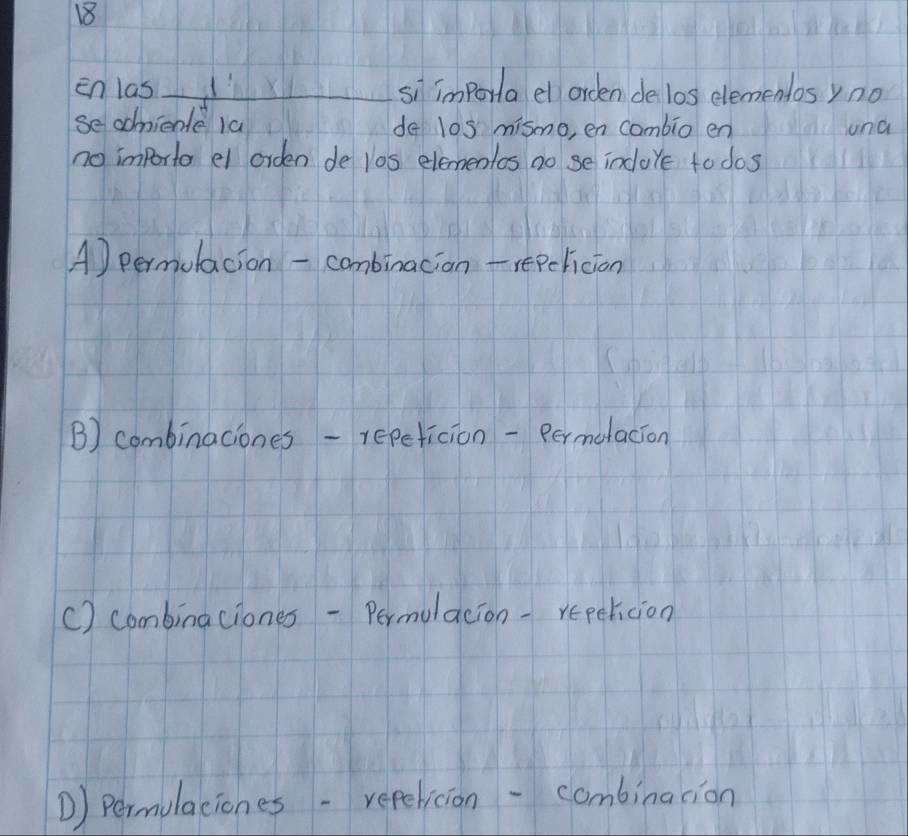 18
En las ________ si importa el orden de los elementos y no
se admiente la de los mismo, en cambio en una
no importo el orden de los elementos no se incluye todos
A) permutacion - combinacion - repeticion
B) combinaciones - repeticion - Permutacion
C) combinaciones - Permutacion - repeticion
D) Permutaciones - repeticion - combinacion